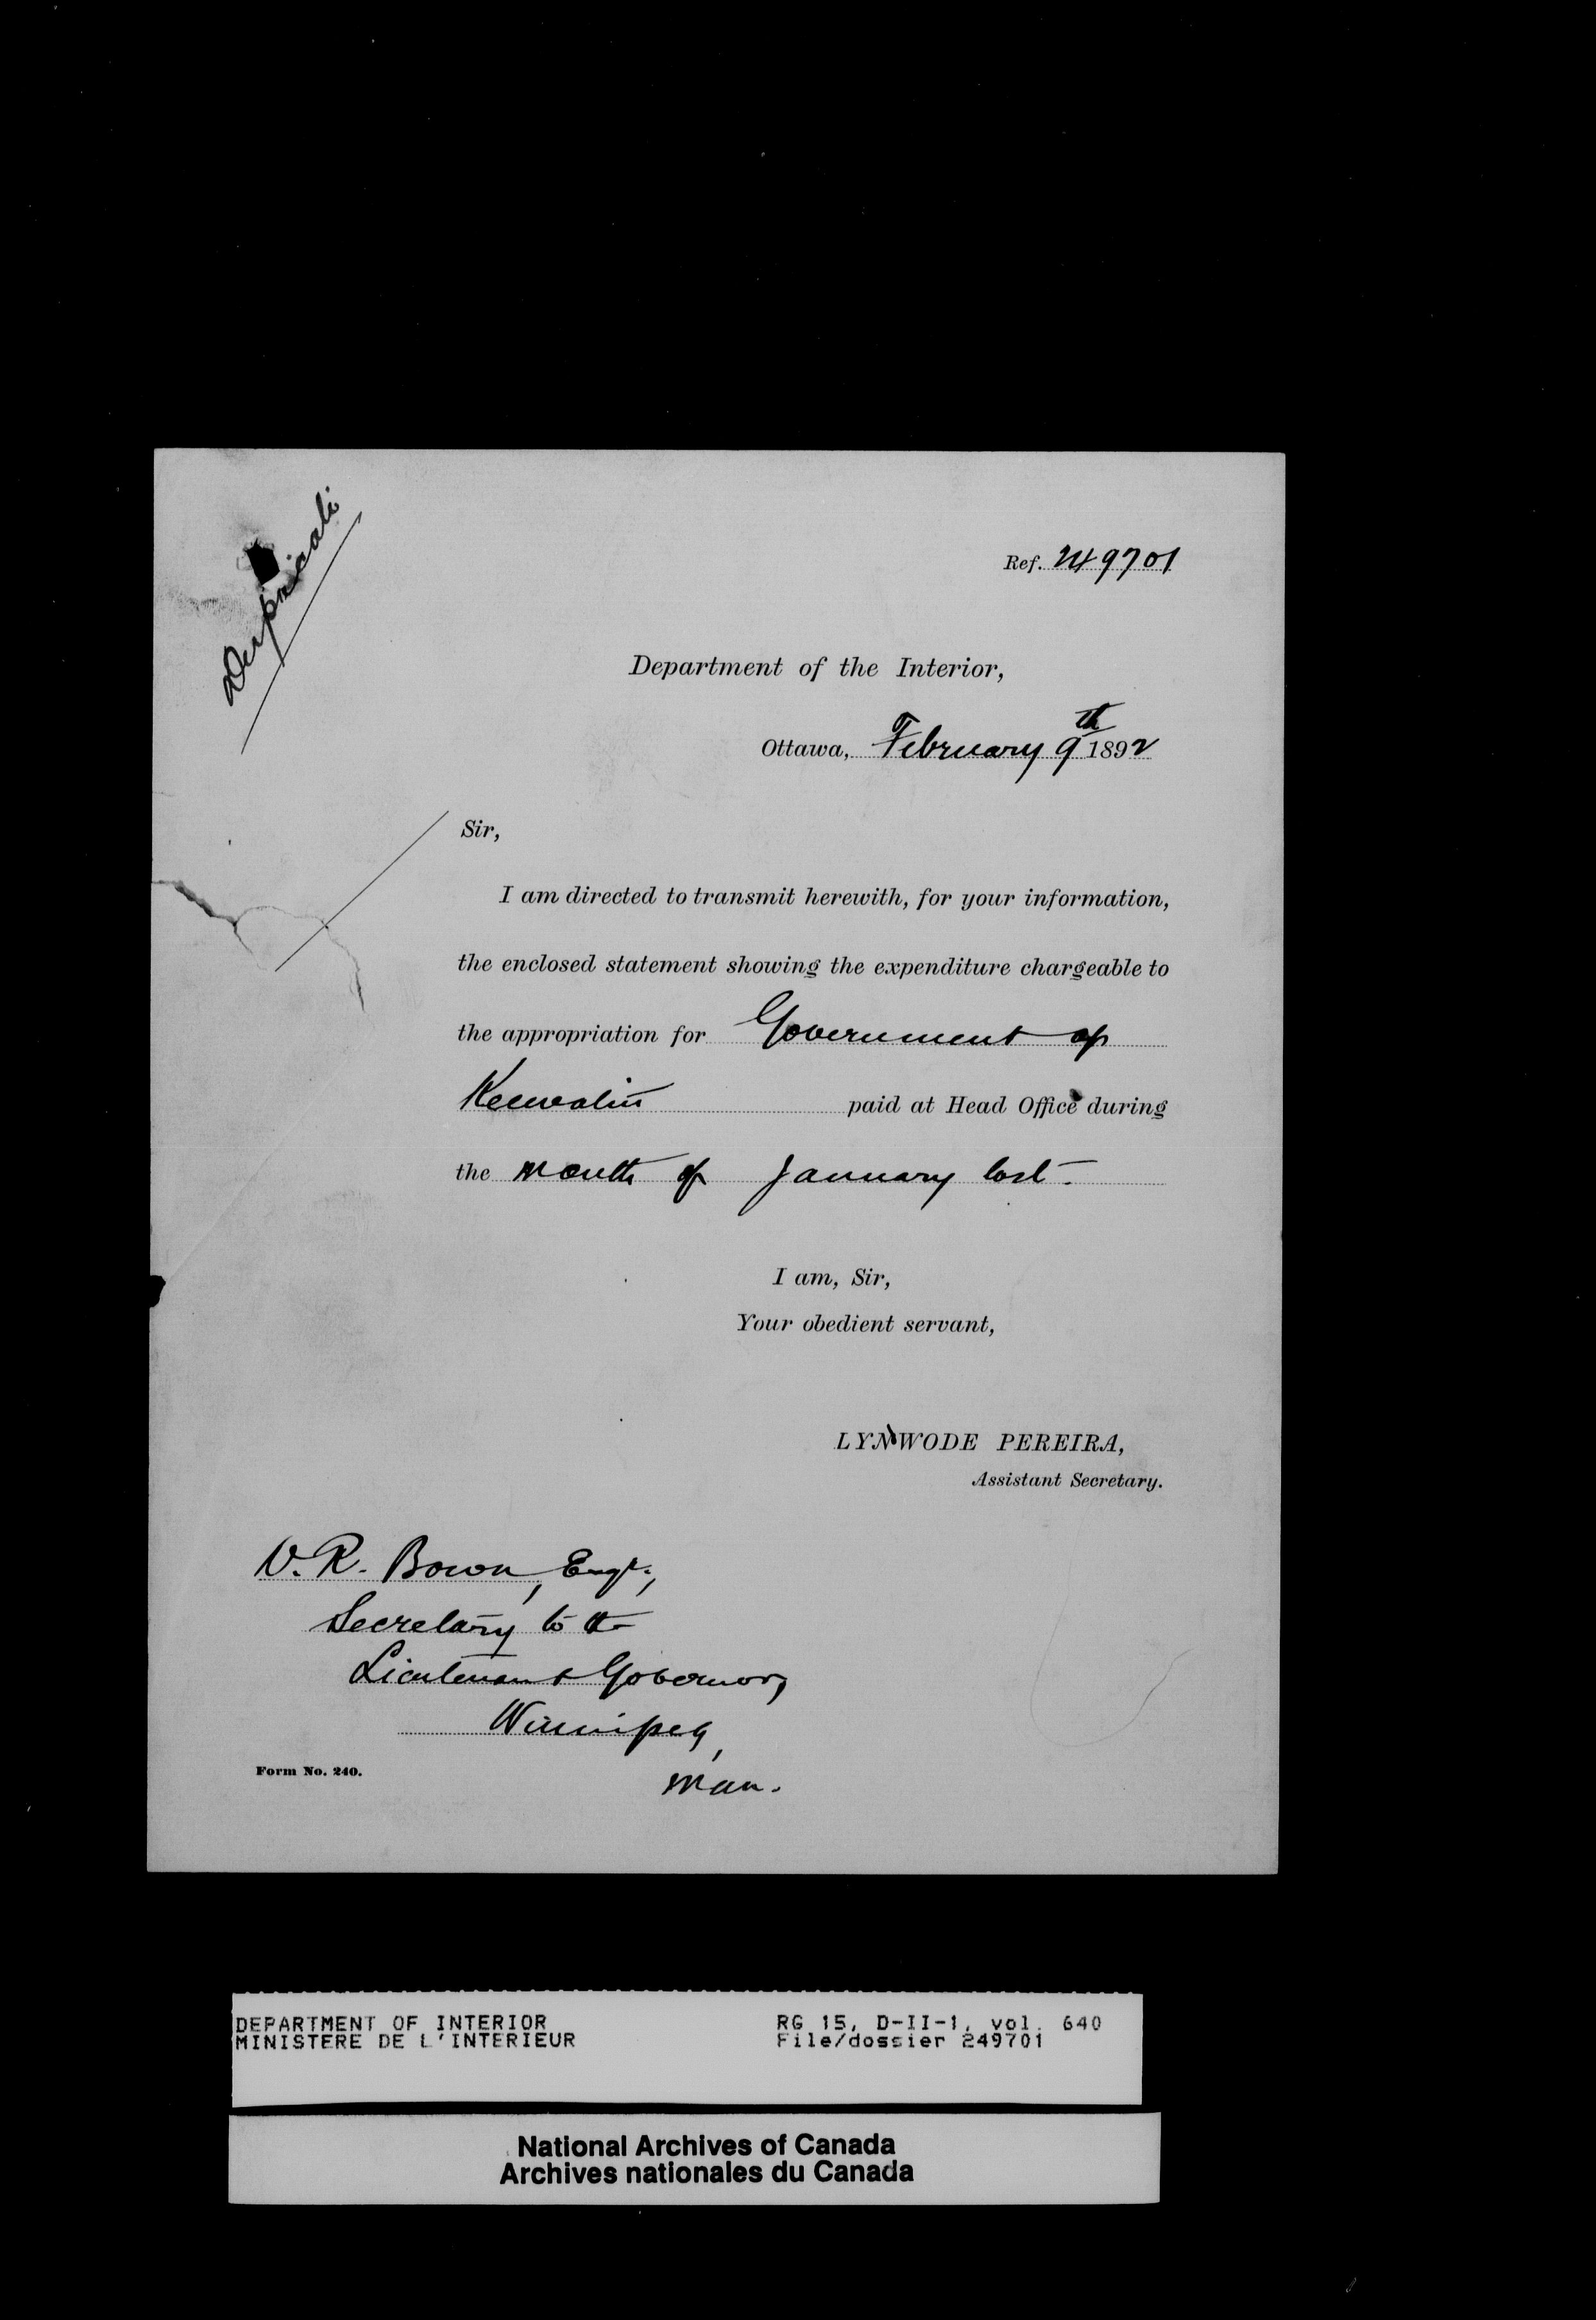 Duplicate
Ref. 249701
Department of the Interior,
Ottawa, February 9th 1892
Sir,
I am directed to transmit herewith, for your information,
the enclosed statement showing the expenditure chargeable to
the appropriation for Government of
Keewatin paid at Head Office during
the month of January last.
I am, Sir,
Your obedient servant,
LYNDWODE PEREIRA,
Assistant Secretary.
V. R. Bown, Esqr.,
Secretary to the
Lieutenant Governor,
Winnipeg,
Man.
Form No. 240.
DEPARTMENT OF INTERIOR RG 15, D-II-1, vol. 640
MINISTERE DE L'INTERIEUR File/dossier 249701
National Archives of Canada
Archives nationales du Canada